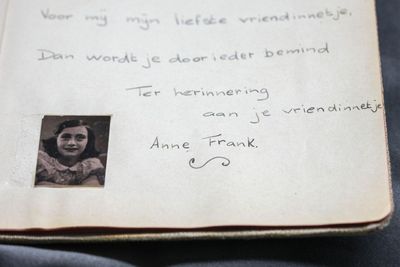 Voor mij mijn liefste vriendinnetje,
Dan wordt je door ieder bemind
Ter herinnering
aan je vriendinnetje
Anne Frank.